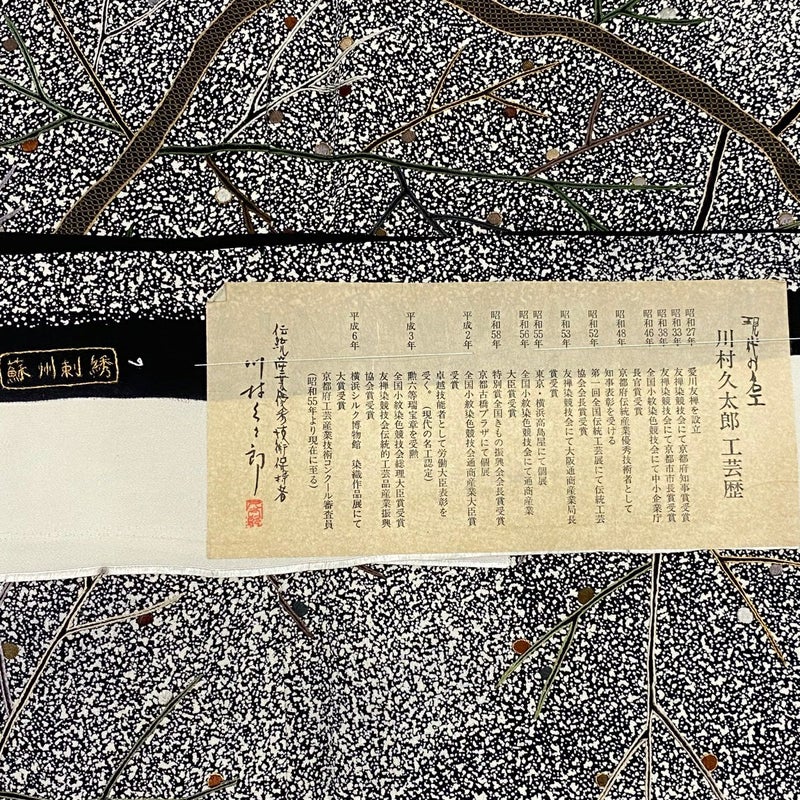 現代の名工
川村久太郎 工芸歴
昭和27年 愛川友禅を設立
昭和33年 友禅染競技会にて京都府知事賞受賞
昭和38年 友禅染競技会にて京都市市長賞受賞
昭和46年 全国小紋染色競技会にて中小企業庁
長官賞受賞
昭和48年 京都府伝統産業優秀技術者として
知事表彰を受ける
昭和52年 第一回全国伝統工芸展にて伝統工芸
協会会長賞受賞
昭和53年 友禅染競技会にて大阪通商産業局長
賞受賞
昭和55年 東京・横浜高島屋にて個展
昭和56年 全国小紋染色競技会にて通商産業
大臣賞受賞
昭和58年 特別賞全国きもの振興会会長賞受賞
京都古橋プラザにて個展
平成2年 全国小紋染色競技会通商産業大臣賞
受賞
卓越技能者として労働大臣表彰を
受く。(現代の名工認定)
平成3年 勲六等瑞宝章を受勲
全国小紋染色競技会総理大臣賞受賞
友禅染競技会伝統的工芸品産業振興
協会賞受賞
平成6年 横浜シルク博物館 染織作品展にて
大賞受賞
京都府工芸産業技術コンクール審査員
(昭和55年より現在に至る)
伝統産業優秀技術保持者
川村久太郎
蘇州刺繍